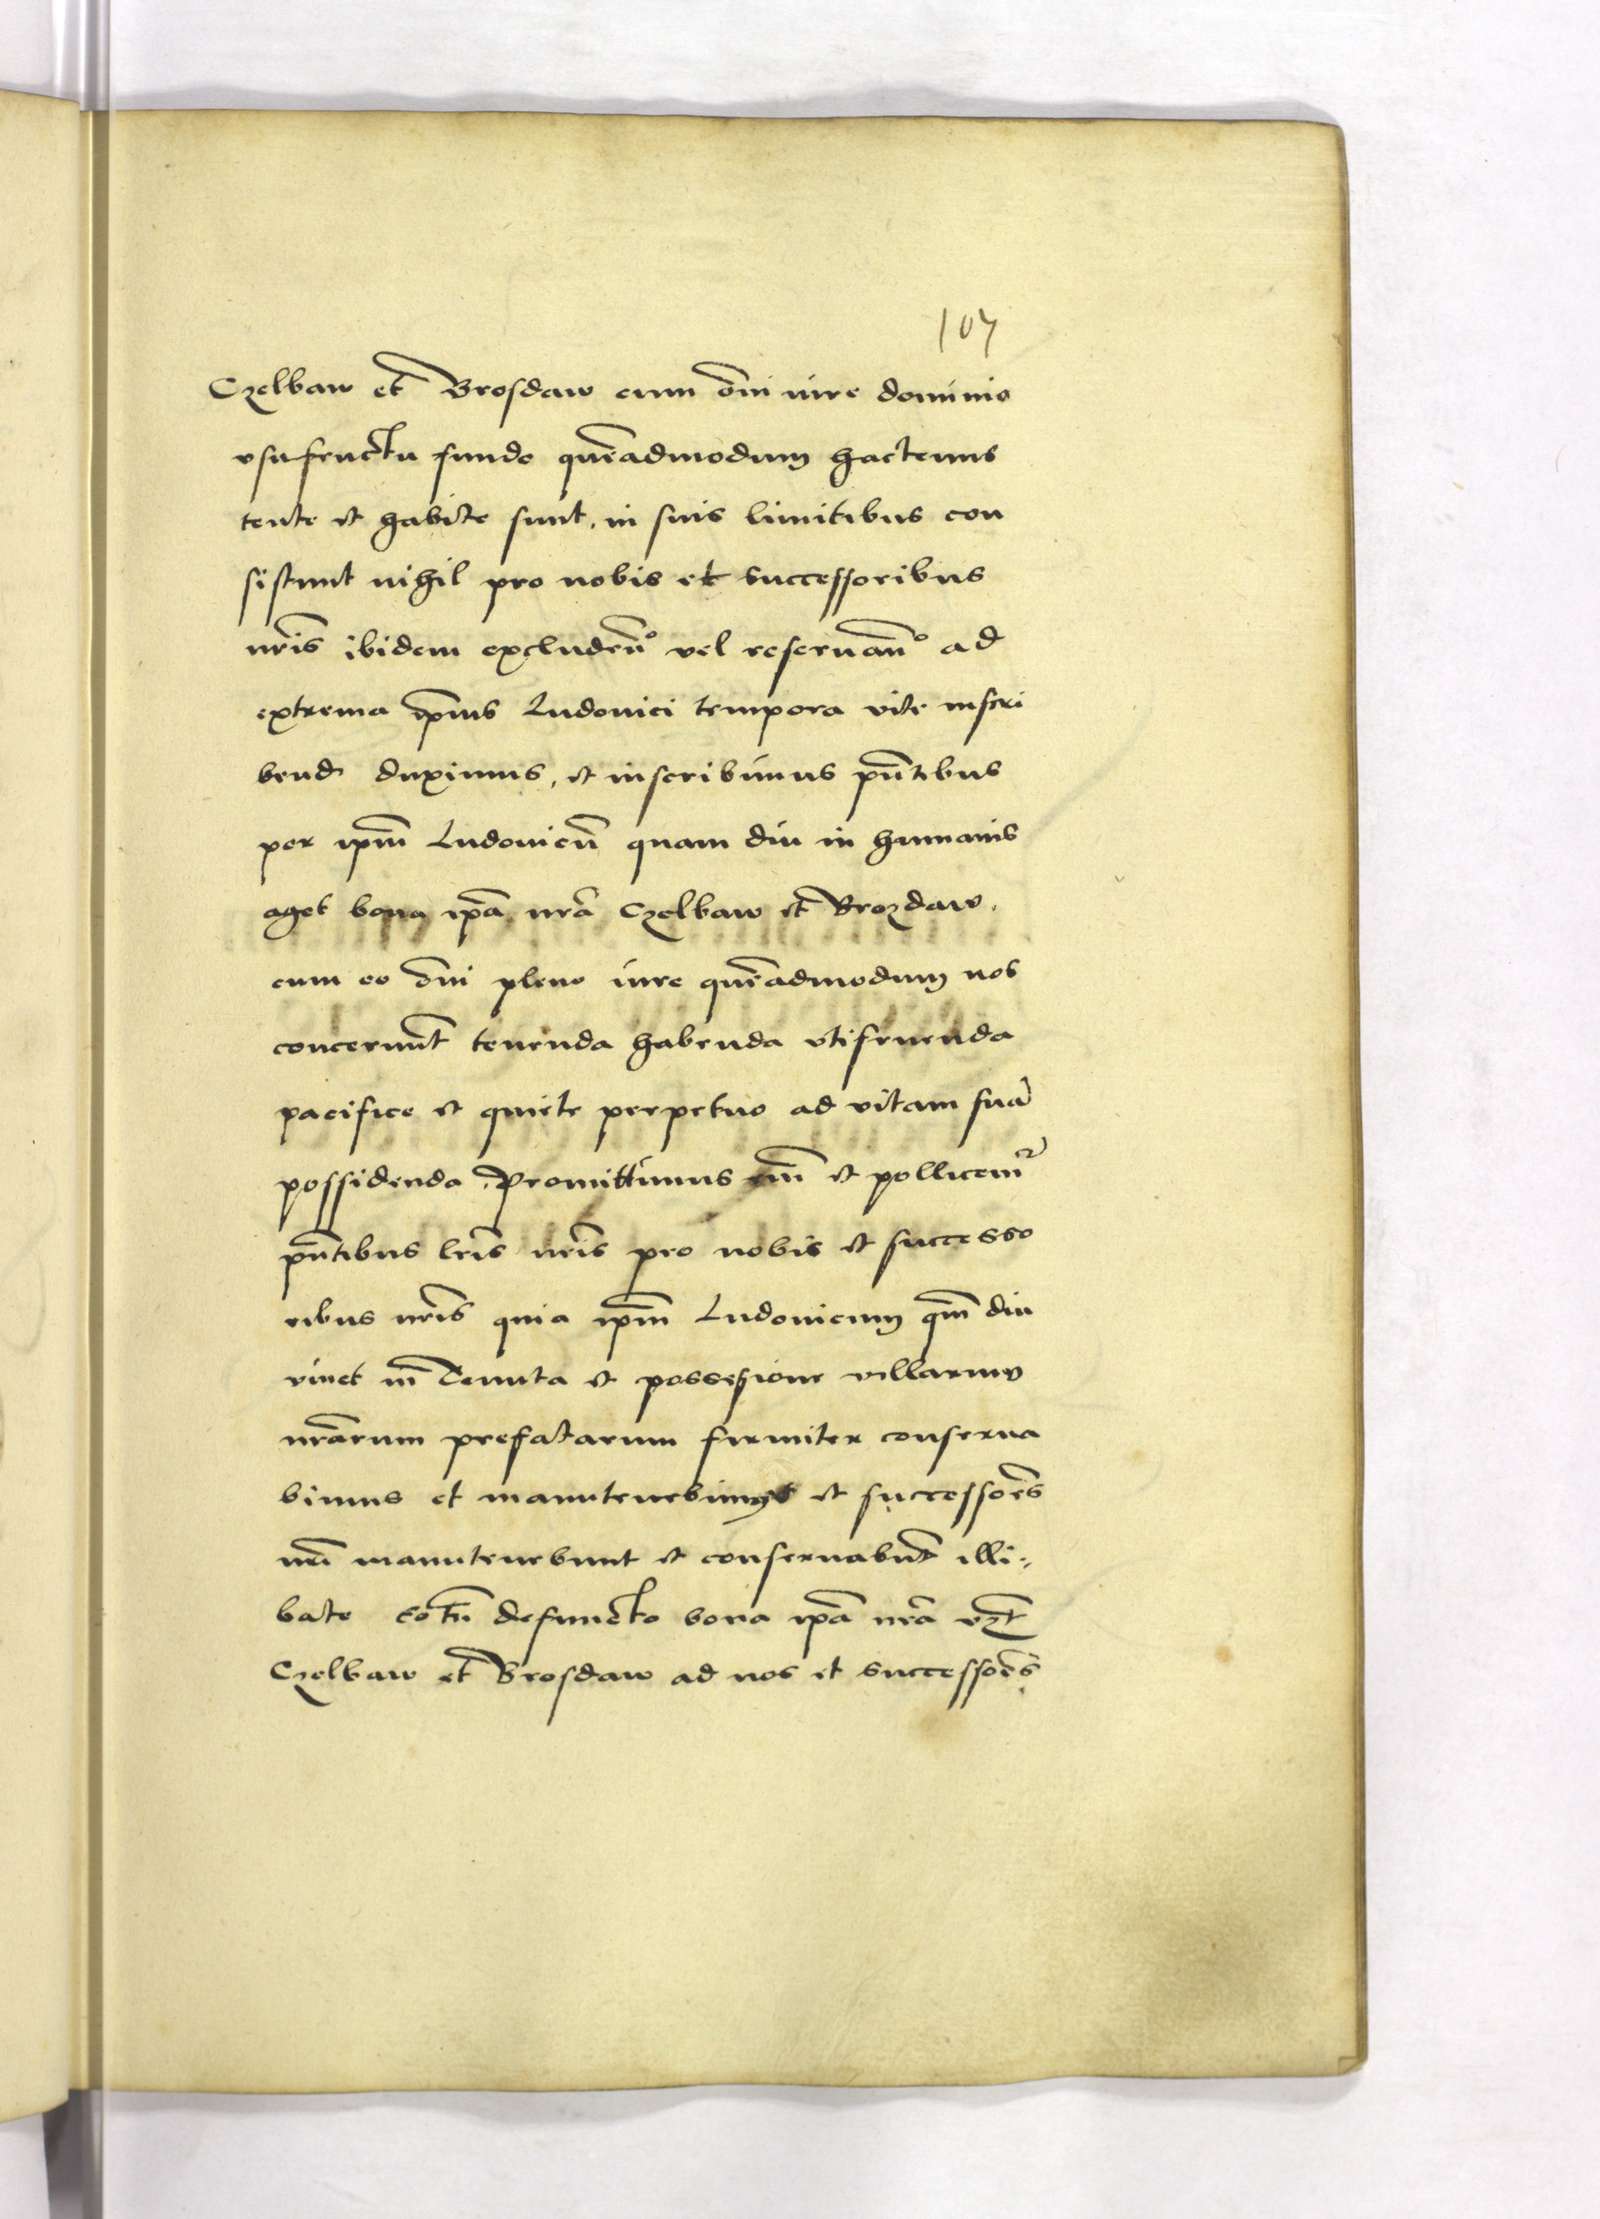 107
Czelbaw et Brosdaw cum o̅m̅i iure dominio
vsufructu fundo que̅admodum hactenus
tente et habite sunt, in suis limitibus con
sistunt nihil pro nobis et successoribus
nr̅is ibidem excluden̅o vel reservan̅o ad
extrema ip̅ius Ludovici tempora vite inscri
bend duximus, et inscribimus pn̅tibus
per ip̅m Ludovicu̅ quam diu in humanis
aget bona ip̅a nr̅a Czelbaw et Brozdaw,
cum eo o̅m̅i pleno iure que̅admodum nos
concernu̅t tenenda habenda vtifruenda
pacifice et quiete perpetuo ad vitam sua̅
possidenda, Promittimus em̅ et pollicem̅r
pn̅tibus lr̅is nr̅is pro nobis et successo
ribus nr̅is quia ip̅m Ludovicum qm̅ diu
vivet in̅ tenuta et possessione villarum
nr̅arum prefatarum firmiter conserva
bimus et manutenebimus et successore̅s
nr̅i manutenebunt et conservabu̅t illi-
bate eo tn̅ defuncto bona ip̅a nr̅a vz̅t
Czelbaw et Brosdaw ad nos et successore̅s